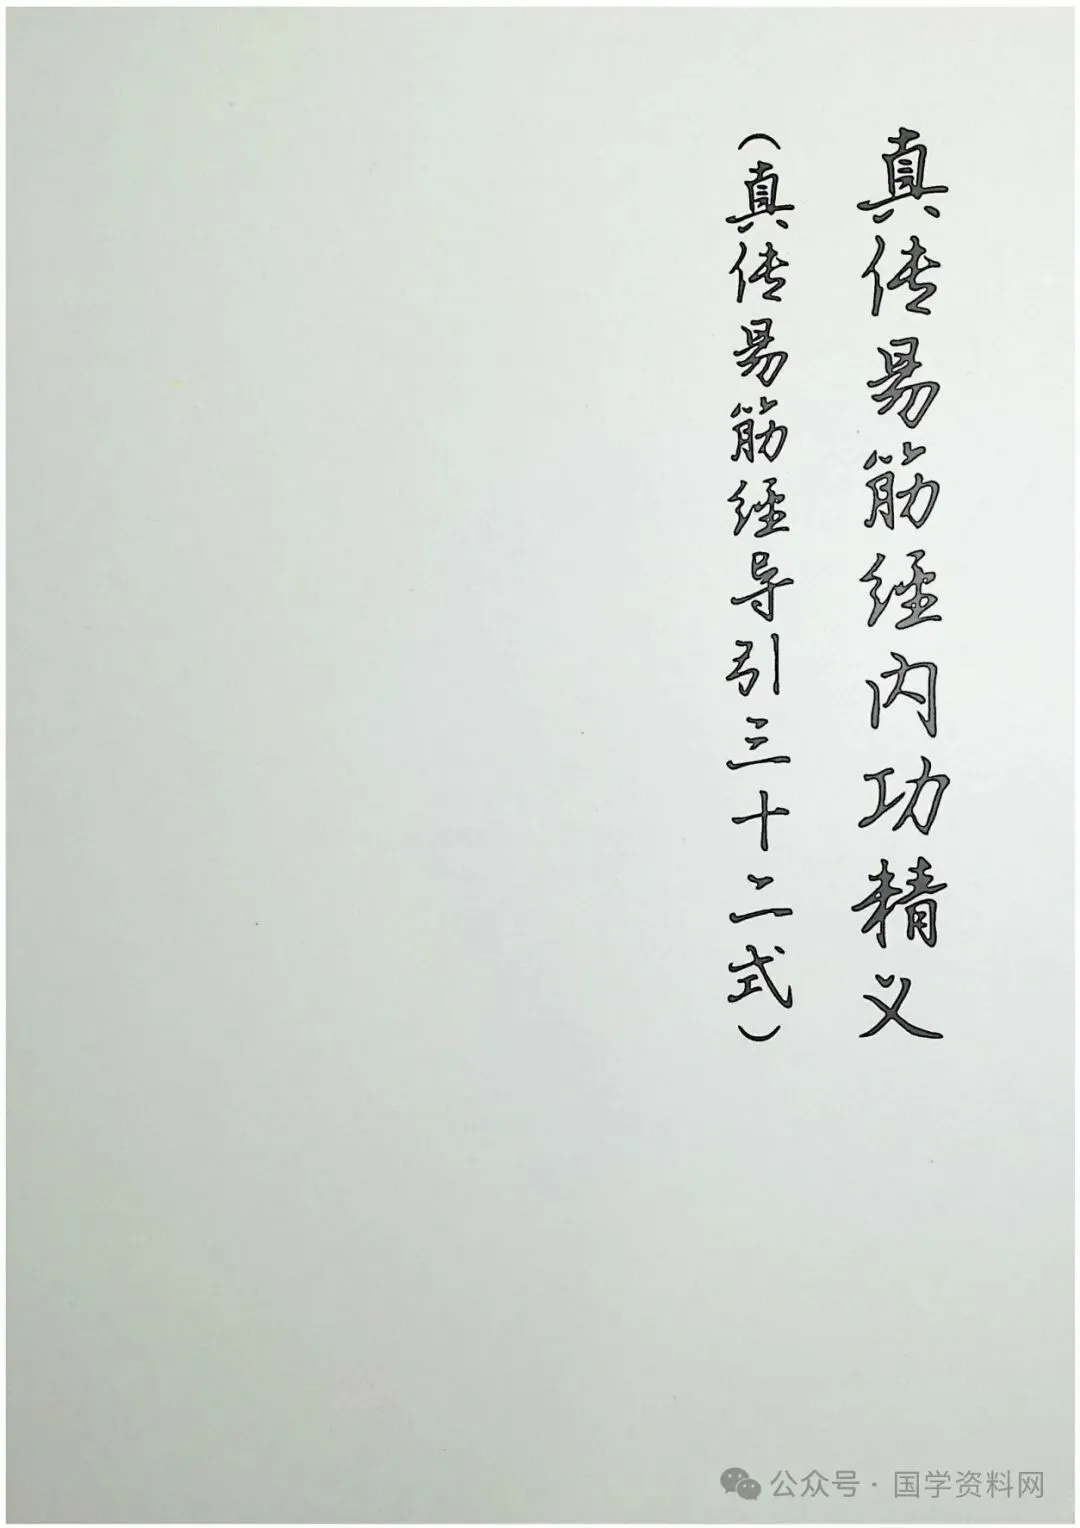 真传易筋经内功精义
（真传易筋经导引三十二式）
公众号·国学资料网